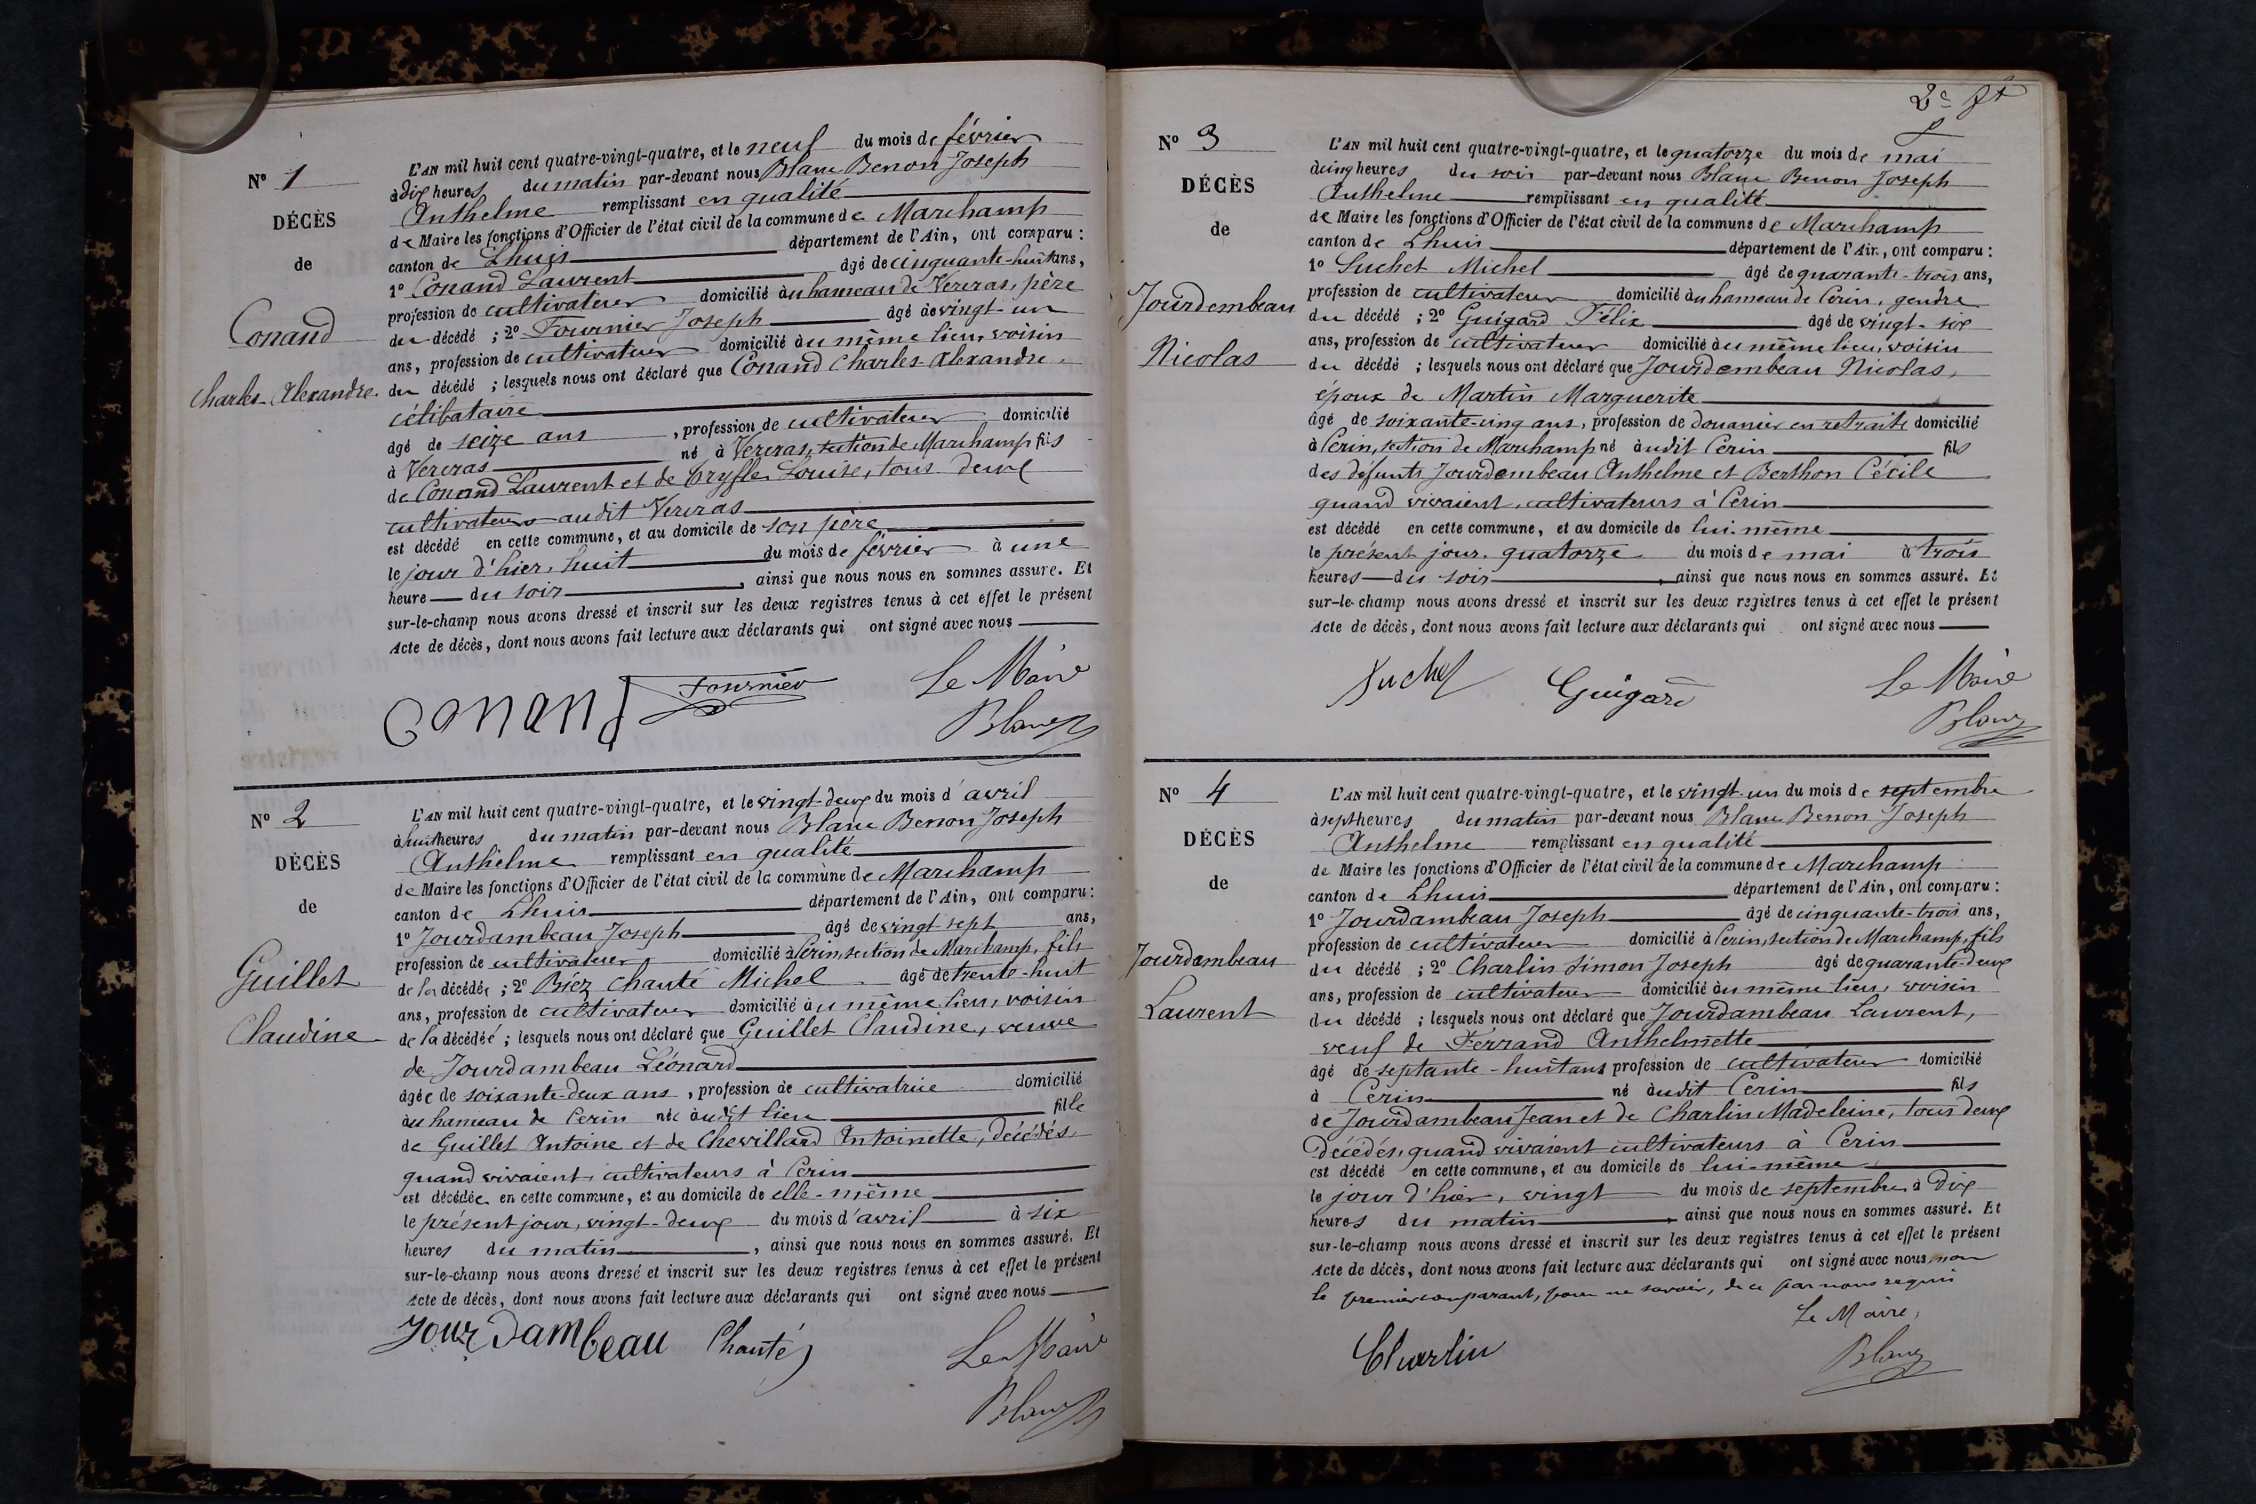 N° 1
DÉCÈS
de
Conand
Charles Alexandre.
L'AN mil huit cent quatre-vingt-quatre, et le neuf du mois de février
à dix heures du matin par-devant nous Blanc Benon Joseph
Anthelme remplissant en qualité
de Maire les fonctions d'Officier de l'état civil de la commune de Marchamp
canton de Lhuis département de l'Ain, ont comparu :
1° Conand Laurent âgé de cinquante-huit ans,
profession de cultivateur domicilié au hameau de Vereras, père
du décédé ; 2° Fournier Joseph âgé de vingt-un
ans, profession de cultivateur domicilié au même lieu, voisin
du décédé ; lesquels nous ont déclaré que Conand Charles Alexandre,
célibataire
âgé de seize ans , profession de cultivateur domicilié
à Vereras né à Vereras, section de Marchamp fils
de Conand Laurent et de Louise, tous deux
cultivateurs audit Vereras
est décédé en cette commune, et au domicile de son père
le jour d'hier, huit du mois de février à une
heure du soir , ainsi que nous nous en sommes assuré. Et
sur-le-champ nous avons dressé et inscrit sur les deux registres tenus à cet effet le présent
Acte de décès, dont nous avons fait lecture aux déclarants qui ont signé avec nous
Conand Fournier Le Maire
Blanc
N° 2
DÉCÈS
de
Guillet
Claudine
L'AN mil huit cent quatre-vingt-quatre, et le vingt-deux du mois d'avril
à huit heures du matin par-devant nous Blanc Benon Joseph
Anthelme remplissant en qualité
de Maire les fonctions d'Officier de l'état civil de la commune de Marchamp
canton de Lhuis département de l'Ain, ont comparu :
1° Jourdambeau Joseph âgé de vingt sept ans,
profession de cultivateur domicilié à Cerin, section de Marchamp, fils
de la décédée ; 2° Biez Chanté Michel âgé de trente-huit
ans, profession de cultivateur domicilié au même lieu, voisin
de la décédée ; lesquels nous ont déclaré que Guillet Claudine, veuve
de Jourdambeau Léonard
âgée de soixante-deux ans , profession de cultivatrice domicilié
au hameau de Cerin née audit lieu fille
de Guillet Antoine et de Chevillard Antoinette, décédés,
quand vivaient, cultivateurs à Cerin
est décédée en cette commune, et au domicile de elle-même
le présent jour, vingt-deux du mois d'avril à six
heures du matin , ainsi que nous nous en sommes assuré. Et
sur-le-champ nous avons dressé et inscrit sur les deux registres tenus à cet effet le présent
Acte de décès, dont nous avons fait lecture aux déclarants qui ont signé avec nous
Jourdambeau Chanté Le Maire
Blanc
2e ft
N° 3
DÉCÈS
de
Jourdembeau
Nicolas
L'AN mil huit cent quatre-vingt-quatre, et le quatorze du mois de mai
à cinq heures du soir par-devant nous Blanc Benon Joseph
Anthelme remplissant en qualité
de Maire les fonctions d'Officier de l'état civil de la commune de Marchamp
canton de Lhuis département de l'Ain, ont comparu :
1° Suchet Michel âgé de quarante-trois ans,
profession de cultivateur domicilié au hameau de Cerin, gendre
du décédé ; 2° Guigard Félix âgé de vingt-six
ans, profession de cultivateur domicilié au même lieu, voisin
du décédé ; lesquels nous ont déclaré que Jourdembeau Nicolas,
époux de Martin Marguerite
âgé de soixante-cinq ans, profession de douanier en retraite domicilié
à Cerin, section de Marchamp né audit Cerin fils
des défunts Jourdembeau Anthelme et Berthon Cécile
quand vivaient, cultivateurs à Cerin
est décédé en cette commune, et au domicile de lui-même
le présent jour, quatorze du mois de mai à trois
heures du soir , ainsi que nous nous en sommes assuré. Et
sur-le-champ nous avons dressé et inscrit sur les deux registres tenus à cet effet le présent
Acte de décès, dont nous avons fait lecture aux déclarants qui ont signé avec nous
Suchet Guigard Le Maire
Blanc
N° 4
DÉCÈS
de
Jourdambeau
Laurent
L'AN mil huit cent quatre-vingt-quatre, et le vingt-un du mois de septembre
à sept heures du matin par-devant nous Blanc Benon Joseph
Anthelme remplissant en qualité
de Maire les fonctions d'Officier de l'état civil de la commune de Marchamp
canton de Lhuis département de l'Ain, ont comparu :
1° Jourdambeau Joseph âgé de cinquante-trois ans,
profession de cultivateur domicilié à Cerin, section de Marchamp, fils
du décédé ; 2° Charlin Simon Joseph âgé de quarante-deux
ans, profession de cultivateur domicilié au même lieu, voisin
du décédé ; lesquels nous ont déclaré que Jourdambeau Laurent,
veuf de Ferrand Anthelmette
âgé de septante-huit ans profession de cultivateur domicilié
à Cerin né audit Cerin fils
de Jourdambeau Jean et de Charlin Madeleine, tous deux
décédés, quand vivaient cultivateurs à Cerin
est décédé en cette commune, et au domicile de lui-même
le jour d'hier, vingt du mois de septembre à dix
heures du matin , ainsi que nous nous en sommes assuré. Et
sur-le-champ nous avons dressé et inscrit sur les deux registres tenus à cet effet le présent
Acte de décès, dont nous avons fait lecture aux déclarants qui ont signé avec nous, non
le premier comparant, pour ne savoir, de ce par nous requis
Le Maire,
Charlin Blanc